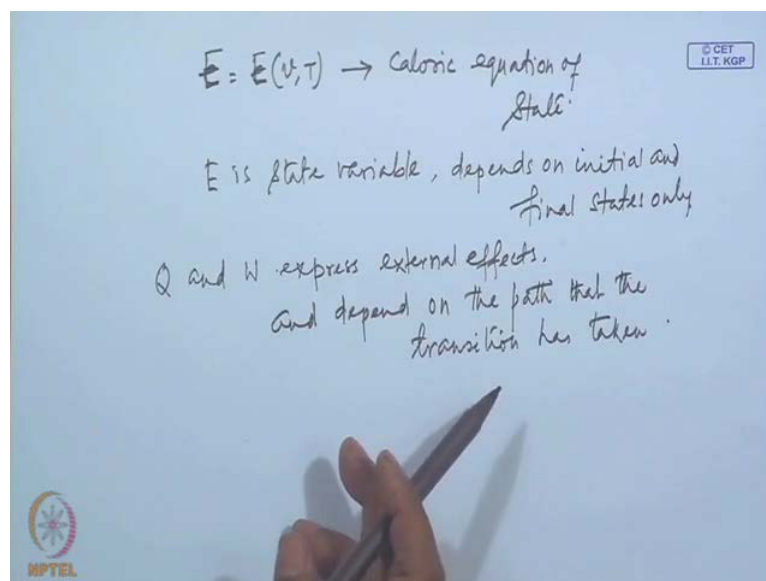 E = E(v,T) → Caloric equation of
State.
© CET
I.I.T. KGP
E is state variable, depends on initial and
final states only
Q and W express external effects.
and depend on the path that the
transition has taken.
NPTEL